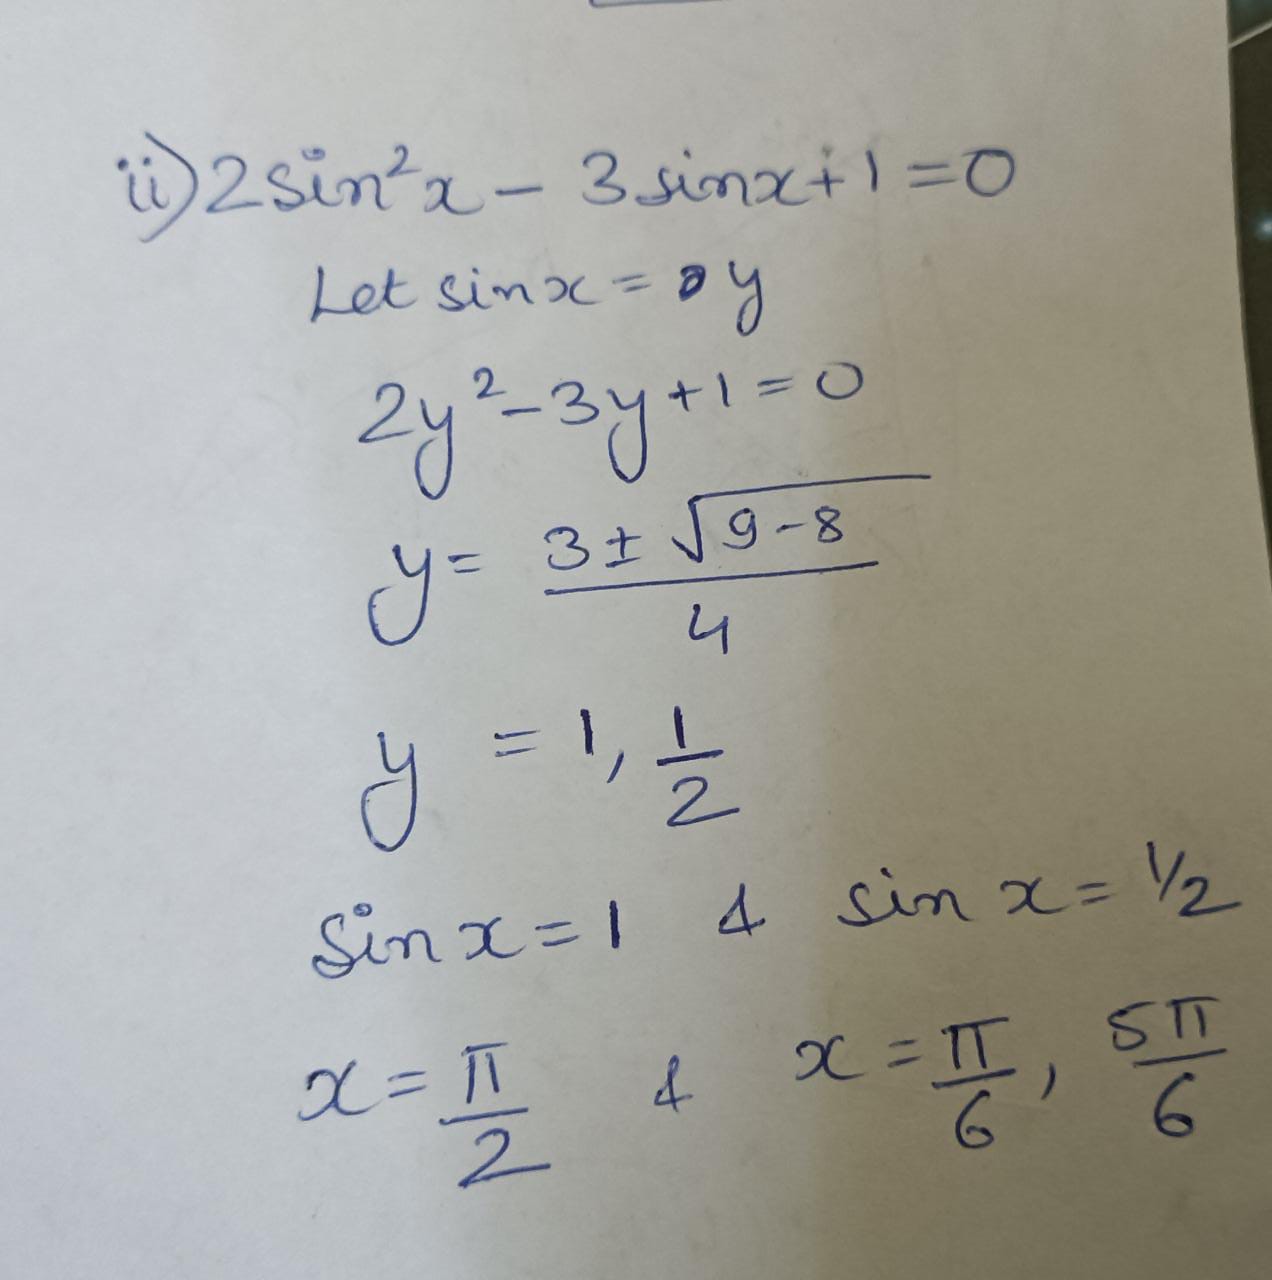 ii) 2sin²x - 3sinx+1=0
Let sinx = y
2y²-3y+1=0
y= 3±√9-8 / 4
y = 1, 1/2
Sinx=1 & sin x= 1/2
x= π/2 & x = π/6, 5π/6